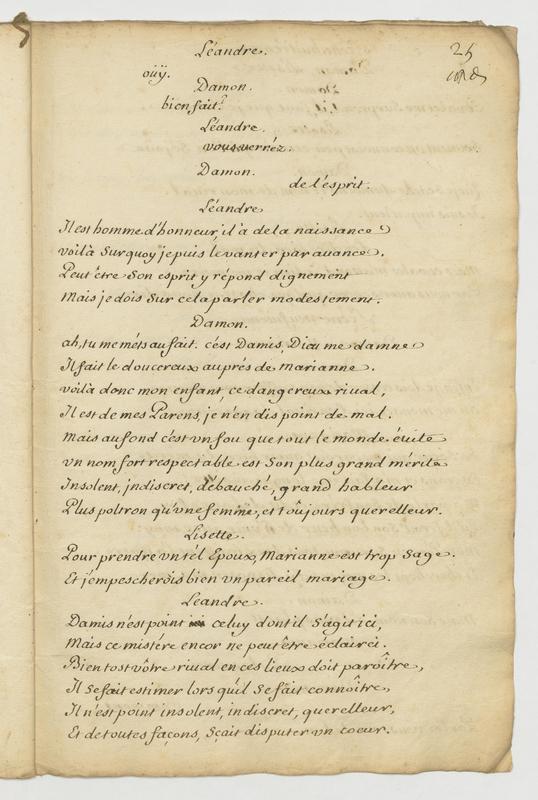 25
Léandre.
oüÿ.
Damon.
bien fait?
Léandre.
vous verréz.
Damon.
de l'esprit.
Léandre
Il est homme d'honneur, il à de la naissance
voilà Sur quoy je puis le vanter par auance.
Peut être Son esprit y répond dignement
Mais je dois Sur cela parler modestement.
Damon.
ah, tu me méts au fait. c'est Damis, Dieu me damne
Il fait le doucereux auprés de Marianne.
voilà donc mon enfant, ce dangereux riual,
Il est de mes Parens, je n'en dis point de mal.
Mais au fond c'est vn fou que tout le monde éuite
vn nom fort respectable est Son plus grand mérite
Insolent, jndiscret, débauché, grand hableur
Plus poltron qu'vne femme, et toûjours querelleur.
Lisette.
Pour prendre vn tél Epoux, Marianne est trop Sage.
Et j'empescherois bien vn pareil mariage.
Leandre.
Damis n'est point celuy dont il S'agit ici,
Mais ce mistére encor ne peut être éclairci.
Bien tost vôtre riual en ces lieux doit paroître,
Il Se fait estimer lors qu'il Se fait connoître,
Il n'est point insolent, indiscret, querelleur,
Et de toutes façons, Sçait disputer vn coeur.